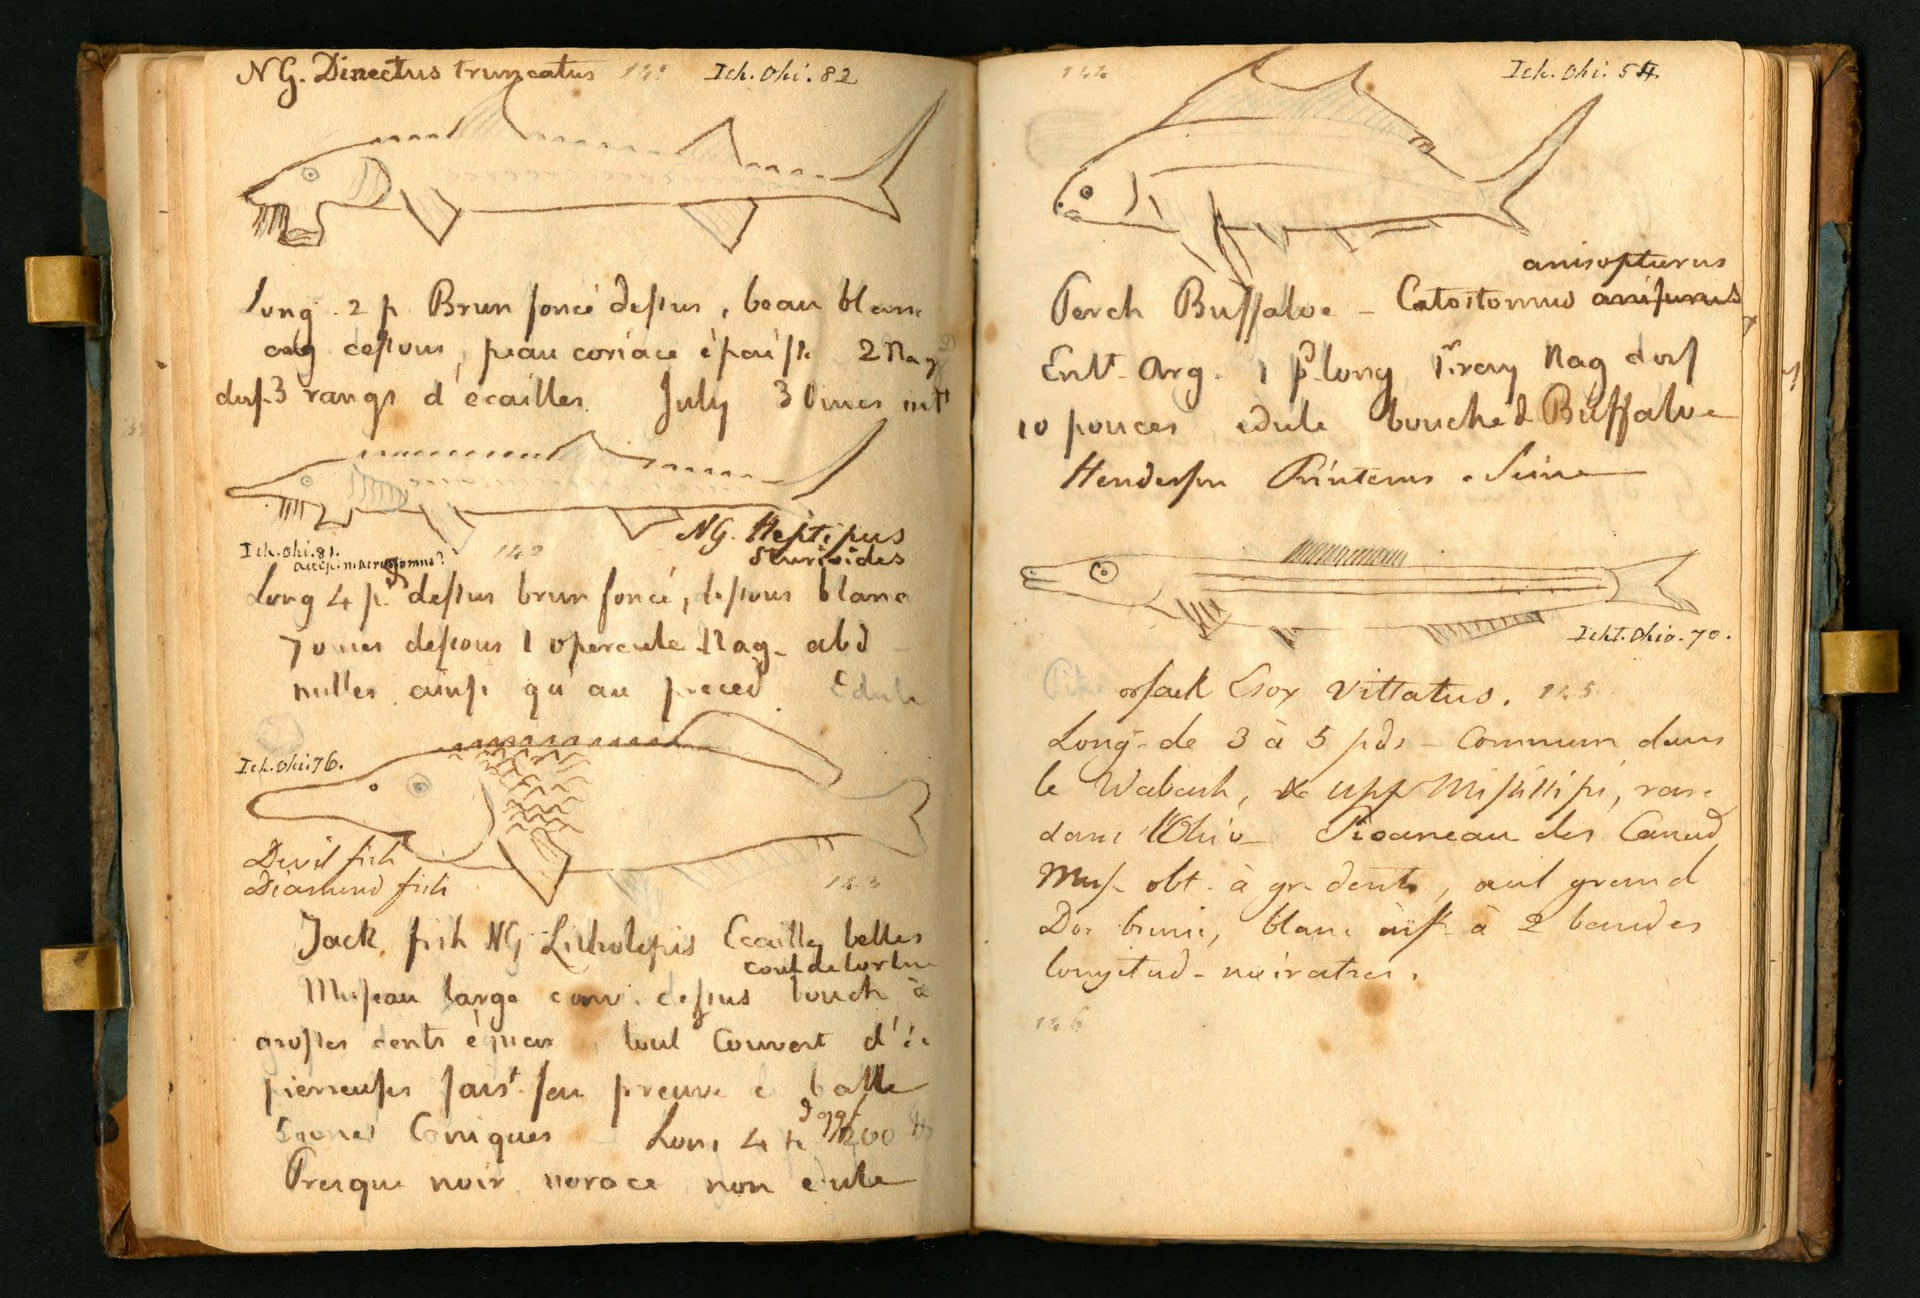 NG. Dinectus truncatus 141 Ich. Ohi. 82
Long 2 p Brun foncé dessus, beau blanc
dessous, peau coriace épaisse 2 Nag
dorf. 3 rangs d'écailles July 3 Ouies int
NG. Heptipus
Sturioides
Ich. Ohi. 81. 142
Long 4 p dessus brun foncé, dessous blanc
7 ouies dessous 1 opercule Nag. abd
nulles ainsi qu'au preced Edule
Ich. Ohi. 76.
Devil fish
Diamond fish 143
Jack fish NG Litholepis Ecailly belles
Museau large conv. dessus bouch à
grosses dents tout couvert d'é
pierreuses fais.t feu preuve balle
Coniques Long 4 p 400
Presque noir vorace non edule
144 Ich. Ohi. 54.
anisopturus
Perch Buffaloe – Catostomus anisurus
Ent.t Arg. 1 p long 1.r ray Nag dorf
10 pouces edule bouche d Buffaloe
Henderson Printems . Seine
Icht. Ohio. 70.
Pike or Jack Esox Vittatus. 145
Long.r de 3 à 5 pds – Commun dans
le Wabash, & upp Missisipi, rare
dans l'Ohio – Picaneau des Canad
Mus. obt. à gr dents, œil grand
Dos brun, blanc à 2 bandes
longitud – noiratres.
146